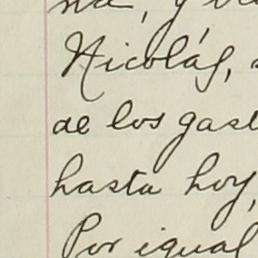 Nicolás,
de los gast
hasta hoy,
Por igual